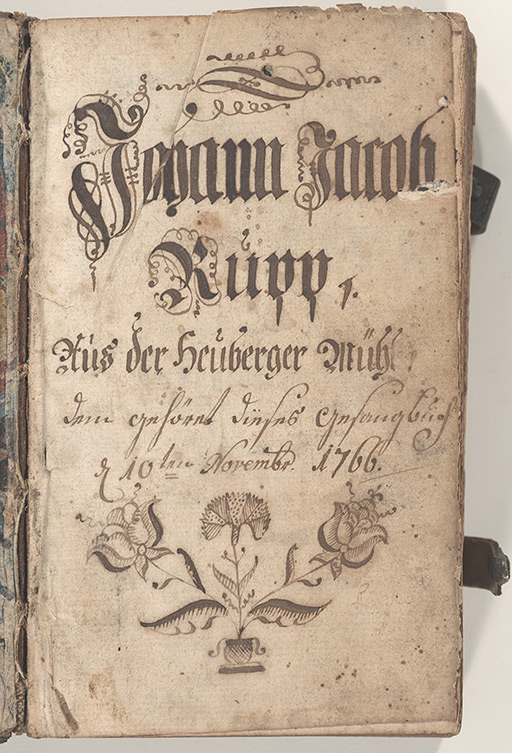 Johann Jacob
Rüpp,
Aus der Heuberger Mühl
dem gehöret dieses Gesangbuch
d 10ten Novembr. 1766.